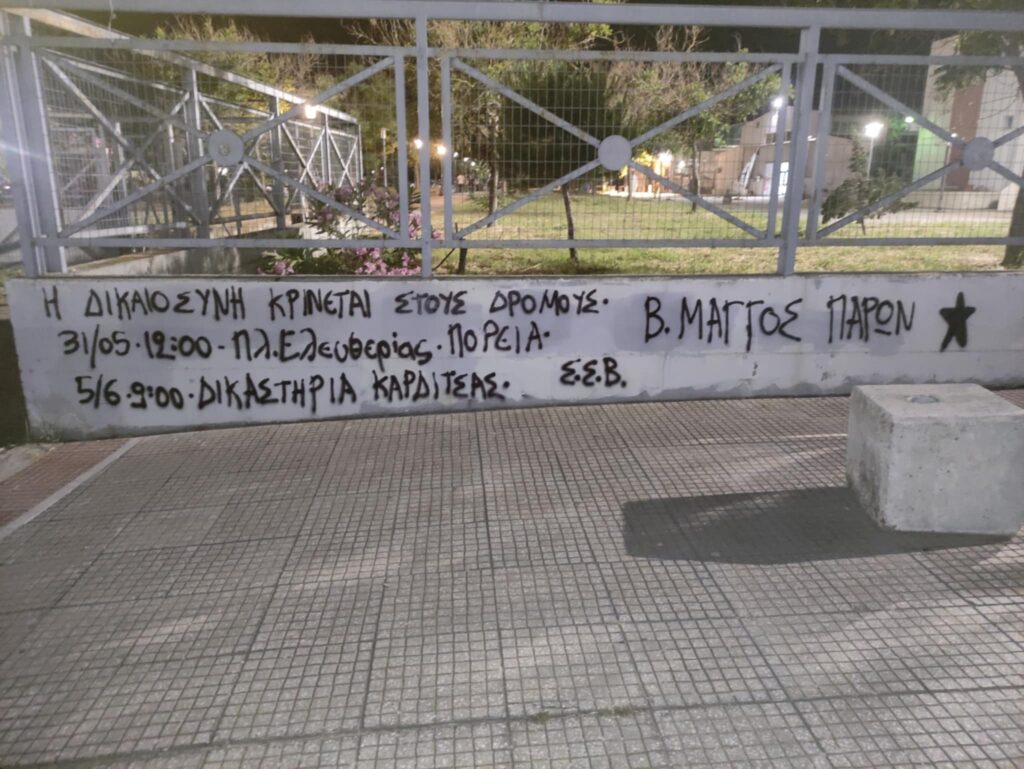 Η ΔΙΚΑΙΟΣΥΝΗ ΚΡΙΝΕΤΑΙ ΣΤΟΥΣ ΔΡΟΜΟΥΣ·
31/05·12:00-Πλ.Ελευθερίας·ΠΟΡΕΙΑ·
5/6·9:00·ΔΙΚΑΣΤΗΡΙΑ ΚΑΡΔΙΤΣΑΣ·
Σ.Σ.Β.
Β.ΜΑΓΓΟΣ ΠΑΡΩΝ ★